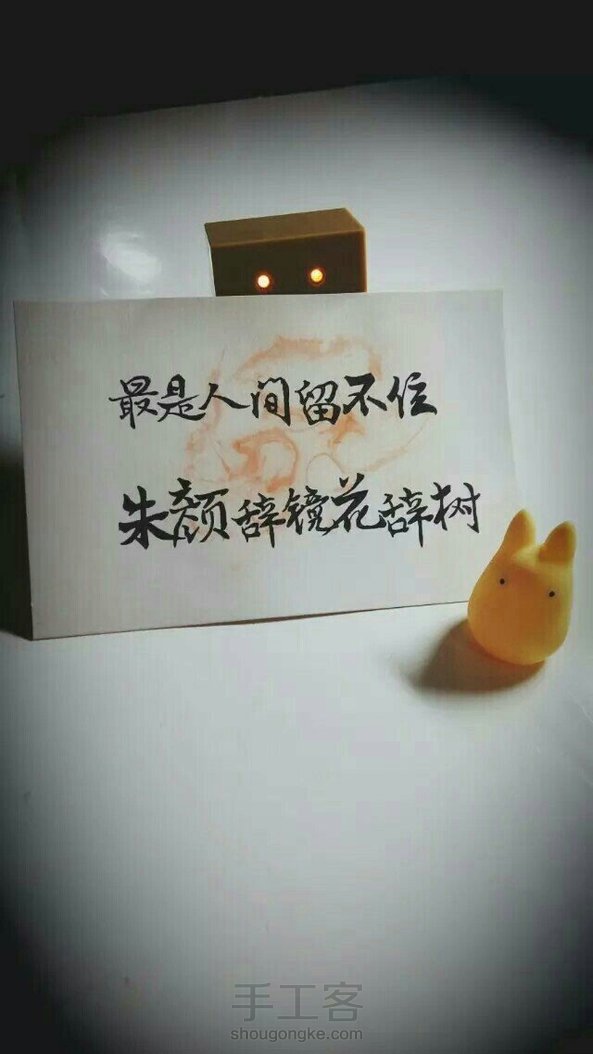 最是人间留不住
朱颜辞镜花辞树
手工客
shougongke.com